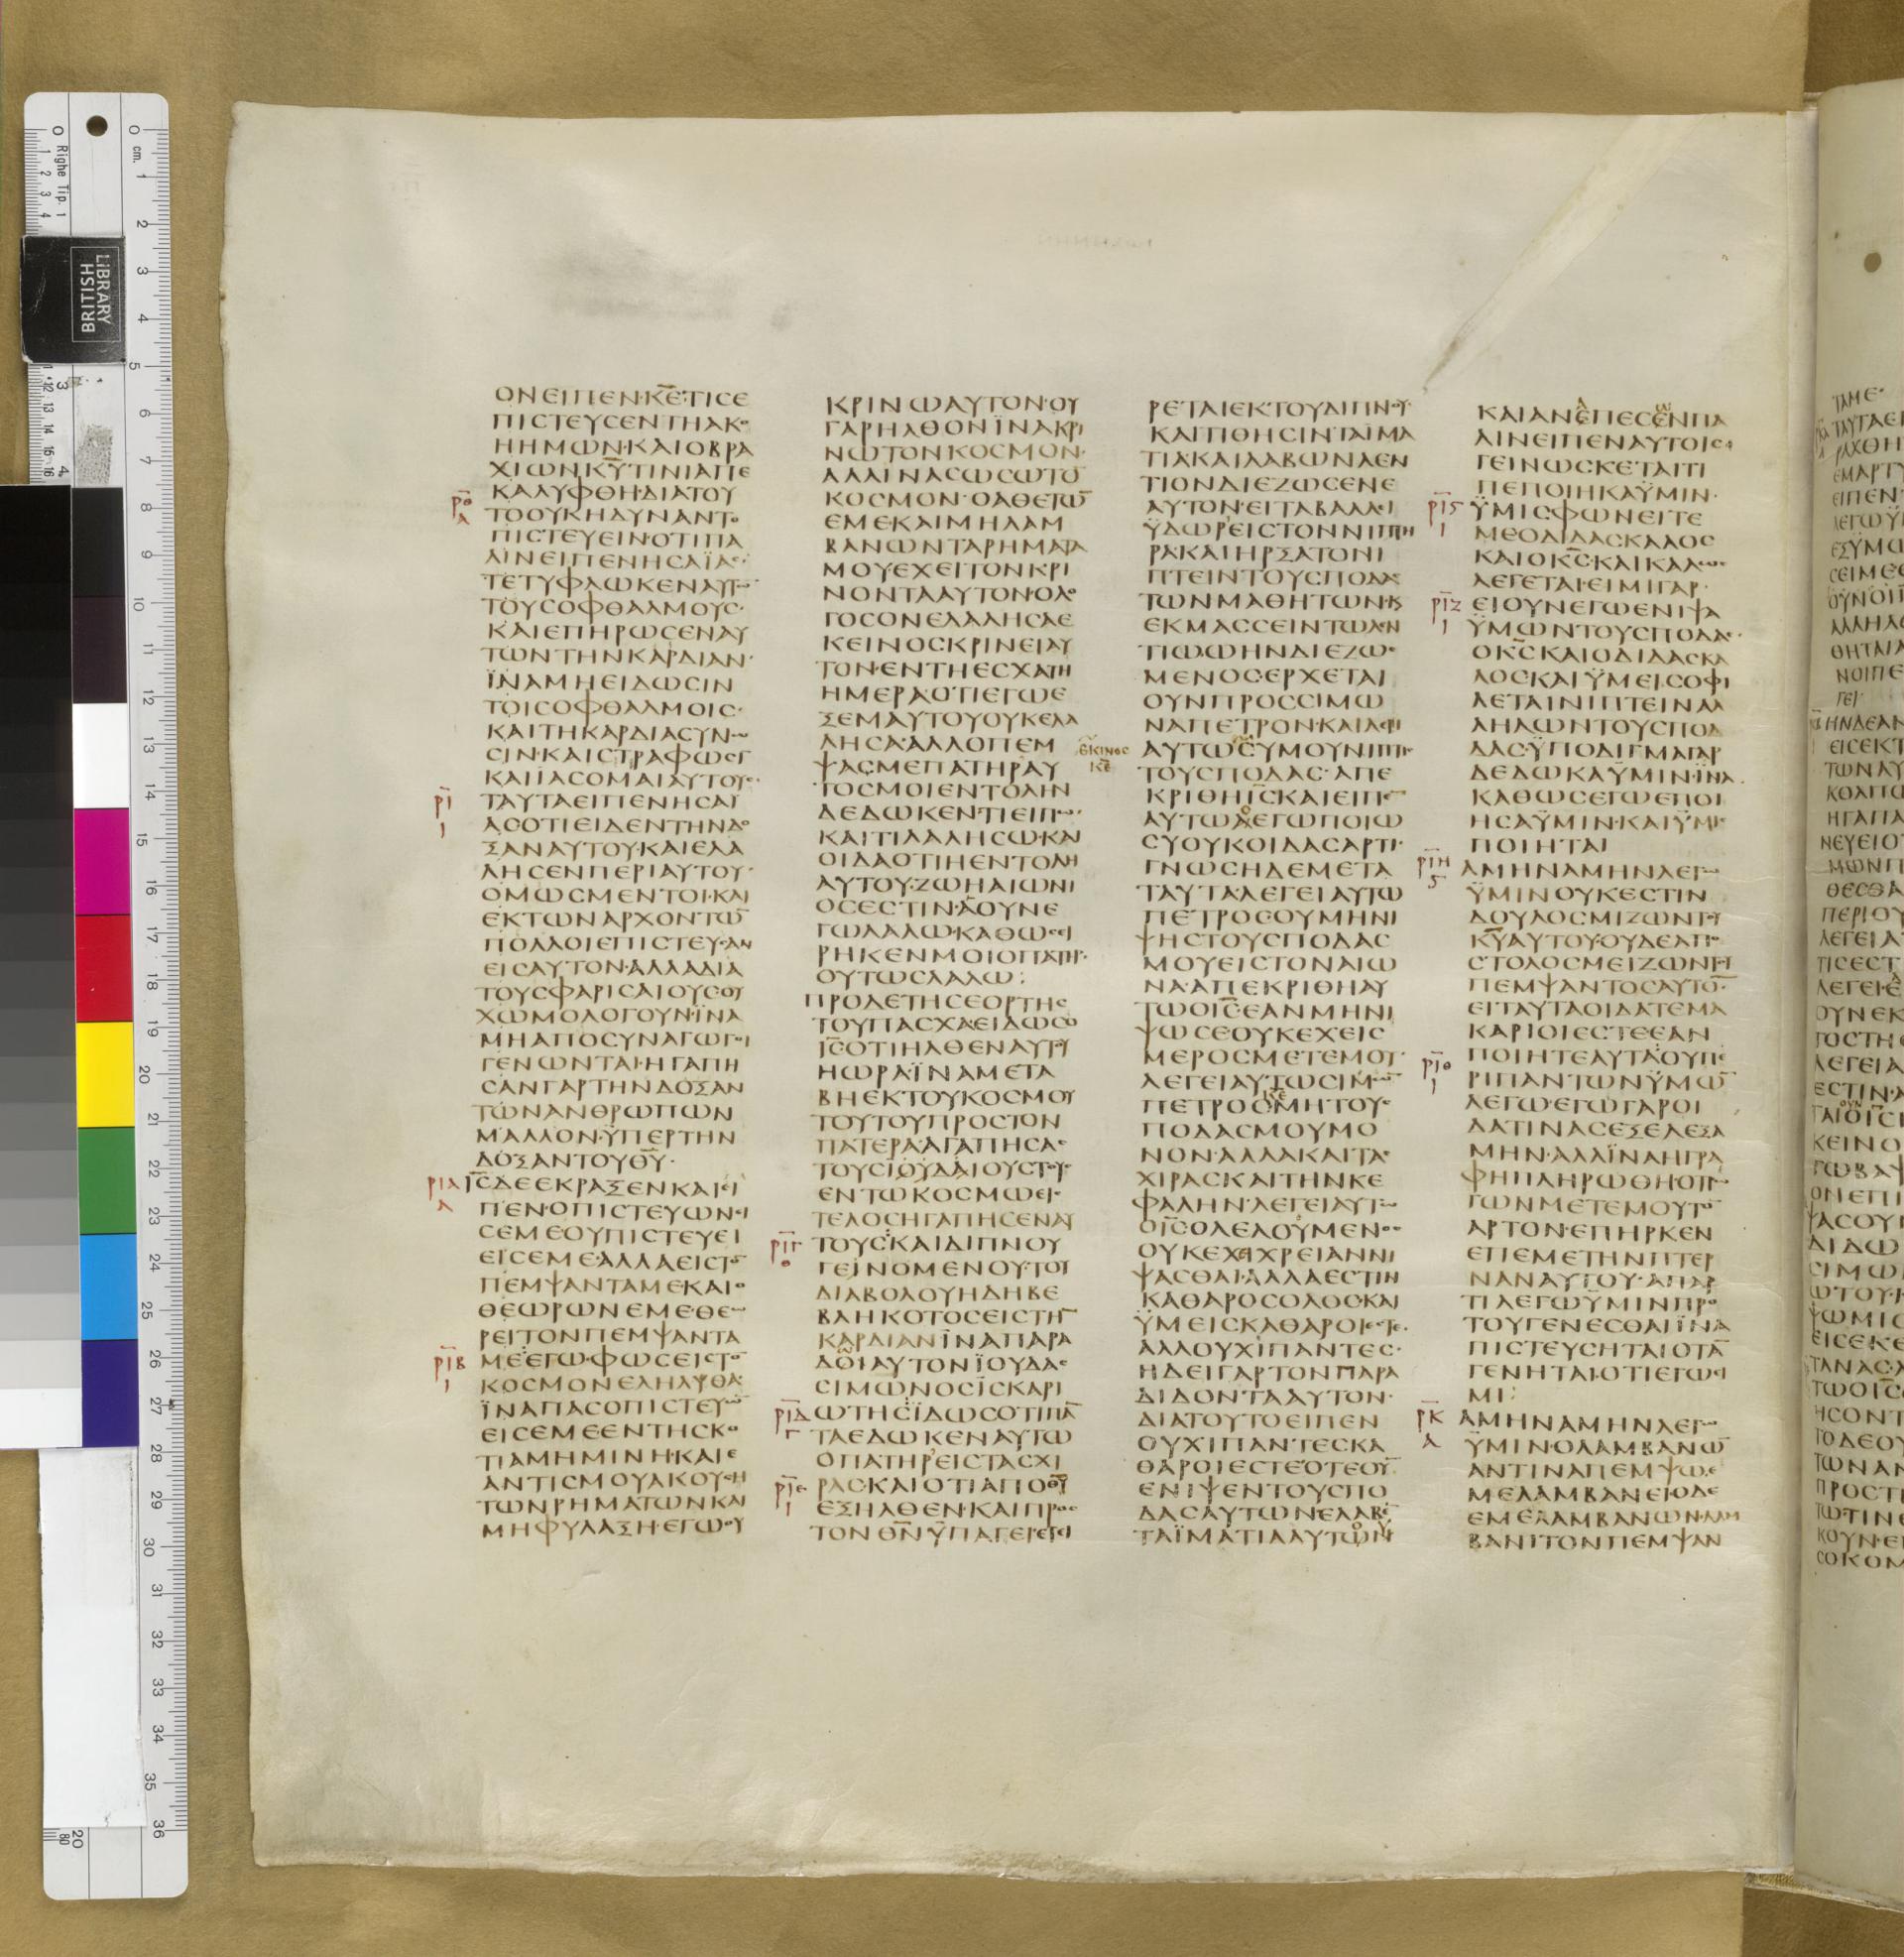 ΟΝΕΙΠΕΝ·Κ̅Ε̅ΤΙCΕ
ΠΙCΤΕΥCΕΝΤΗΑΚΟ
ΗΗΜΩΝ·ΚΑΙΟΒΡΑ
ΧΙΩΝΚ̅Υ̅ΤΙΝΙΑΠΕ
ΚΑΛΥΦΘΗ·ΔΙΑΤΟΥ
ΤΟΟΥΚΗΔΥΝΑΝΤΟ
ΠΙCΤΕΥΕΙΝ·ΟΤΙΠΑ
ΛΙΝΕΙΠΕΝΗCΑΪΑC·
ΤΕΤΥΦΛΩΚΕΝΑΥΤΩ̅
ΤΟΥCΟΦΘΑΛΜΟΥC·
ΚΑΙΕΠΗΡΩCΕΝΑΥ
ΤΩΝΤΗΝΚΑΡΔΙΑΝ·
ΪΝΑΜΗΕΙΔΩCΙΝ
ΤΟΙCΟΦΘΑΛΜΟΙC·
ΚΑΙΤΗΚΑΡΔΙΑCΥΝΩ
CΙΝ·ΚΑΙCΤΡΑΦΩCΙ
ΚΑΙΪΑCΟΜΑΙΑΥΤΟΥC·
ΤΑΥΤΑΕΙΠΕΝΗCΑΪ
ΑCΟΤΙΕΙΔΕΝΤΗΝΔΟ
ΞΑΝΑΥΤΟΥ·ΚΑΙΕΛΑ
ΛΗCΕΝΠΕΡΙΑΥΤΟΥ·
ΟΜΩCΜΕΝΤΟΙ·ΚΑΙ
ΕΚΤΩΝΑΡΧΟΝΤΩ̅
ΠΟΛΛΟΙΕΠΙCΤΕΥCΑΝ
ΕΙCΑΥΤΟΝ·ΑΛΛΑΔΙΑ
ΤΟΥCΦΑΡΙCΑΙΟΥCΟΥ
ΧΩΜΟΛΟΓΟΥΝ·ΪΝΑ
ΜΗΑΠΟCΥΝΑΓΩΓΟΙ
ΓΕΝΩΝΤΑΙ·ΗΓΑΠΗ
CΑΝΓΑΡΤΗΝΔΟΞΑΝ
ΤΩΝΑΝΘΡΩΠΩΝ
ΜΑΛΛΟΝ·ΫΠΕΡΤΗΝ
ΔΟΞΑΝΤΟΥΘ̅Υ̅·
Ι̅C̅ΔΕΕΚΡΑΞΕΝΚΑΙΕΙ
ΠΕΝ·ΟΠΙCΤΕΥΩΝΕΙ
CΕΜΕΟΥΠΙCΤΕΥΕΙ
ΕΙCΕΜΕ·ΑΛΛΑΕΙCΤΟ̅
ΠΕΜΨΑΝΤΑΜΕ·ΚΑΙΟ
ΘΕΩΡΩΝΕΜΕ·ΘΕΩ
ΡΕΙΤΟΝΠΕΜΨΑΝΤΑ
ΜΕ·ΕΓΩ·ΦΩCΕΙCΤΟ̅
ΚΟCΜΟΝΕΛΗΛΥΘΑ·
ΪΝΑΠΑCΟΠΙCΤΕΥΩ̅
ΕΙCΕΜΕΕΝΤΗCΚΟ
ΤΙΑΜΗΜΙΝΗ·ΚΑΙΕ
ΑΝΤΙCΜΟΥΑΚΟΥCΗ
ΤΩΝΡΗΜΑΤΩΝΚΑΙ
ΜΗΦΥΛΑΞΗ·ΕΓΩΟΥ
ΚΡΙΝΩΑΥΤΟΝ·ΟΥ
ΓΑΡΗΛΘΟΝΪΝΑΚΡΙ
ΝΩΤΟΝΚΟCΜΟΝ·
ΑΛΛΙΝΑCΩCΩΤΟ̅
ΚΟCΜΟΝ·ΟΑΘΕΤΩ̅
ΕΜΕΚΑΙΜΗΛΑΜ
ΒΑΝΩΝΤΑΡΗΜΑΤΑ
ΜΟΥΕΧΕΙΤΟΝΚΡΙ
ΝΟΝΤΑΑΥΤΟΝ·ΟΛΟ
ΓΟCΟΝΕΛΑΛΗCΑΕ
ΚΕΙΝΟCΚΡΙΝΕΙΑΥ
ΤΟΝ·ΕΝΤΗΕCΧΑΤΗ
ΗΜΕΡΑ·ΟΤΙΕΓΩΕ
ΞΕΜΑΥΤΟΥΟΥΚΕΛΑ
ΛΗCΑ·ΑΛΛΟΠΕΜ
ΨΑCΜΕΠΑΤΗΡΑΥ
ΤΟCΜΟΙΕΝΤΟΛΗΝ
ΔΕΔΩΚΕΝ·ΤΙΕΙΠΩ·
ΚΑΙΤΙΛΑΛΗCΩ·ΚΑΙ
ΟΙΔΑΟΤΙΗΕΝΤΟΛΗ
ΑΥΤΟΥ·ΖΩΗΑΙΩΝΙ
ΟCΕCΤΙΝ·ΑΟΥΝΕ
ΓΩΛΑΛΩ·ΚΑΘΩCΕΙ
ΡΗΚΕΝΜΟΙΟΠΑΤΗΡ·
ΟΥΤΩCΛΑΛΩ:
ΠΡΟΔΕΤΗCΕΟΡΤΗC
ΤΟΥΠΑCΧΑ·ΕΙΔΩCΟ
Ι̅C̅ΟΤΙΗΛΘΕΝΑΥΤΟΥ
ΗΩΡΑ·ΪΝΑΜΕΤΑ
ΒΗΕΚΤΟΥΚΟCΜΟΥ
ΤΟΥΤΟΥΠΡΟCΤΟΝ
ΠΑΤΕΡΑ·ΑΓΑΠΗCΑC
ΤΟΥCΙΟΥΔΑΙΟΥCΤΟΥC
ΕΝΤΩΚΟCΜΩΕΙC
ΤΕΛΟCΗΓΑΠΗCΕΝΑΥ
ΤΟΥC·ΚΑΙΔΙΠΝΟΥ
ΓΕΙΝΟΜΕΝΟΥ·ΤΟΥ
ΔΙΑΒΟΛΟΥΗΔΗΒΕ
ΒΛΗΚΟΤΟCΕΙCΤΗ̅
ΚΑΡΔΙΑΝΪΝΑΠΑΡΑ
ΔΟΙΑΥΤΟΝΪΟΥΔΑC
CΙΜΩΝΟCΪCΚΑΡΙ
ΩΤΗC·ΪΔΩCΟΤΙΠΑ̅
ΤΑΕΔΩΚΕΝΑΥΤΩ
ΟΠΑΤΗΡΕΙCΤΑCΧΙ
ΡΑC·ΚΑΙΟΤΙΑΠΟΘ̅Υ̅
ΕΞΗΛΘΕΝ·ΚΑΙΠΡΟC
ΤΟΝΘ̅Ν̅ΫΠΑΓΕΙ·ΕΓΕΙ
ΕΚΙΝΟC
Κ̅Ε̅
ΡΕΤΑΙΕΚΤΟΥΔΙΠΝΟΥ
ΚΑΙΤΙΘΗCΙΝΤΑΪΜΑ
ΤΙΑ·ΚΑΙΛΑΒΩΝΛΕΝ
ΤΙΟΝΔΙΕΖΩCΕΝΕ
ΑΥΤΟΝ·ΕΙΤΑΒΑΛΛΕΙ
ΫΔΩΡΕΙCΤΟΝΝΙΠΤΗ
ΡΑΚΑΙΗΡΞΑΤΟΝΙ
ΠΤΕΙΝΤΟΥCΠΟΔΑC
ΤΩΝΜΑΘΗΤΩΝ·Κ
ΕΚΜΑCCΕΙΝΤΩΛΕΝ
ΤΙΩΩΗΝΔΙΕΖΩC
ΜΕΝΟC·ΕΡΧΕΤΑΙ
ΟΥΝΠΡΟCCΙΜΩ
ΝΑΠΕΤΡΟΝ·ΚΑΙΛΕΓΙ
ΑΥΤΩCΥΜΟΥΝΙΠΤΙC
ΤΟΥCΠΟΔΑC·ΑΠΕ
ΚΡΙΘΗΙ̅C̅ΚΑΙΕΙΠΕ̅
ΑΥΤΩΑΕΓΩΠΟΙΩ
CΥΟΥΚΟΙΔΑCΑΡΤΙ·
ΓΝΩCΗΔΕΜΕΤΑ
ΤΑΥΤΑ·ΛΕΓΕΙΑΥΤΩ
ΠΕΤΡΟC·ΟΥΜΗΝΙ
ΨΗCΤΟΥCΠΟΔΑC
ΜΟΥΕΙCΤΟΝΑΙΩ
ΝΑ·ΑΠΕΚΡΙΘΗΑΥ
ΤΩΟΙ̅C̅·ΕΑΝΜΗΝΙ
ΨΩCΕΟΥΚΕΧΕΙC
ΜΕΡΟCΜΕΤΕΜΟΥ·
ΛΕΓΕΙΑΥΤΩCΙΜΩ̅
ΠΕΤΡΟC·ΜΗΤΟΥC
ΠΟΔΑCΜΟΥΜΟ
ΝΟΝ·ΑΛΛΑΚΑΙΤΑC
ΧΙΡΑCΚΑΙΤΗΝΚΕ
ΦΑΛΗΝ·ΛΕΓΕΙΑΥΤΩ
ΟΙ̅C̅·ΟΛΕΛΟΥΜΕΝΟC
ΟΥΚΕΧΙΧΡΕΙΑΝΝΙ
ΨΑCΘΑΙ·ΑΛΛΑΕCΤΙΝ
ΚΑΘΑΡΟCΟΛΟC·ΚΑΙ
ΫΜΕΙCΚΑΘΑΡΟΙΕCΤΕ·
ΑΛΛΟΥΧΙΠΑΝΤΕC·
ΗΔΕΙΓΑΡΤΟΝΠΑΡΑ
ΔΙΔΟΝΤΑΑΥΤΟΝ·
ΔΙΑΤΟΥΤΟΕΙΠΕΝ
ΟΥΧΙΠΑΝΤΕCΚΑ
ΘΑΡΟΙΕCΤΕ·ΟΤΕΟΥ̅
ΕΝΙΨΕΝΤΟΥCΠΟ
ΔΑCΑΥΤΩΝΕΛΑΒΕ̅
ΤΑΪΜΑΤΙΑΑΥΤΟΥ
ΚΑΙΑΝΕΠΕCΕΝΠΑ
ΛΙΝΕΙΠΕΝΑΥΤΟΙC·
ΓΕΙΝΩCΚΕΤΑΙΤΙ
ΠΕΠΟΙΗΚΑΫΜΙΝ·
ΫΜΙCΦΩΝΕΙΤΕ
ΜΕΟΔΙΔΑCΚΑΛΟC
ΚΑΙΟΚ̅C̅·ΚΑΙΚΑΛΩC
ΛΕΓΕΤΑΙ·ΕΙΜΙΓΑΡ·
ΕΙΟΥΝΕΓΩΕΝΙΨΑ
ΫΜΩΝΤΟΥCΠΟΔΑC·
ΟΚ̅C̅ΚΑΙΟΔΙΔΑCΚΑ
ΛΟC·ΚΑΙΫΜΕΙCΟΦΙ
ΛΕΤΑΙΝΙΠΤΕΙΝΑΛ
ΛΗΛΩΝΤΟΥCΠΟ
ΔΑC·ΫΠΟΔΙΓΜΑΓΑΡ
ΔΕΔΩΚΑΫΜΙΝ·ΪΝΑ
ΚΑΘΩCΕΓΩΕΠΟΙ
ΗCΑΫΜΙΝ·ΚΑΙΫΜΙC
ΠΟΙΗΤΑΙ
ΑΜΗΝΑΜΗΝΛΕΓΩ
ΫΜΙΝΟΥΚΕCΤΙΝ
ΔΟΥΛΟCΜΙΖΩΝΤΟΥ
Κ̅Υ̅ΑΥΤΟΥ·ΟΥΔΕΑΠΟ
CΤΟΛΟCΜΕΙΖΩΝΤΟΥ
ΠΕΜΨΑΝΤΟCΑΥΤΟ̅·
ΕΙΤΑΥΤΑΟΙΔΑΤΕΜΑ
ΚΑΡΙΟΙΕCΤΕΕΑΝ
ΠΟΙΗΤΕΑΥΤΑ·ΟΥΠΕ
ΡΙΠΑΝΤΩΝΫΜΩ̅
ΛΕΓΩ·ΕΓΩΓΑΡΟΙ
ΔΑΤΙΝΑCΕΞΕΛΕΞΑ
ΜΗΝ·ΑΛΛΪΝΑΗΓΡΑ
ΦΗΠΛΗΡΩΘΗ·ΟΤΡΩ
ΓΩΝΜΕΤΕΜΟΥΤΟ̅
ΑΡΤΟΝ·ΕΠΗΡΚΕΝ
ΕΠΕΜΕΤΗΝΠΤΕΡ
ΝΑΝΑΥΤΟΥ·ΑΠΑΡ
ΤΙΛΕΓΩΫΜΙΝΠΡΟ
ΤΟΥΓΕΝΕCΘΑΙΪΝΑ
ΠΙCΤΕΥCΗΤΑΙΟΤΑ̅
ΓΕΝΗΤΑΙ·ΟΤΙΕΓΩΕΙ
ΜΙ:
ΑΜΗΝΑΜΗΝΛΕΓΩ
ΫΜΙΝ·ΟΛΑΜΒΑΝΩ̅
ΑΝΤΙΝΑΠΕΜΨΩ·Ε
ΜΕΛΑΜΒΑΝΕΙ·ΟΔΕ
ΕΜΕΛΑΜΒΑΝΩΝ·ΛΑΜ
ΒΑΝΙΤΟΝΠΕΜΨΑΝ